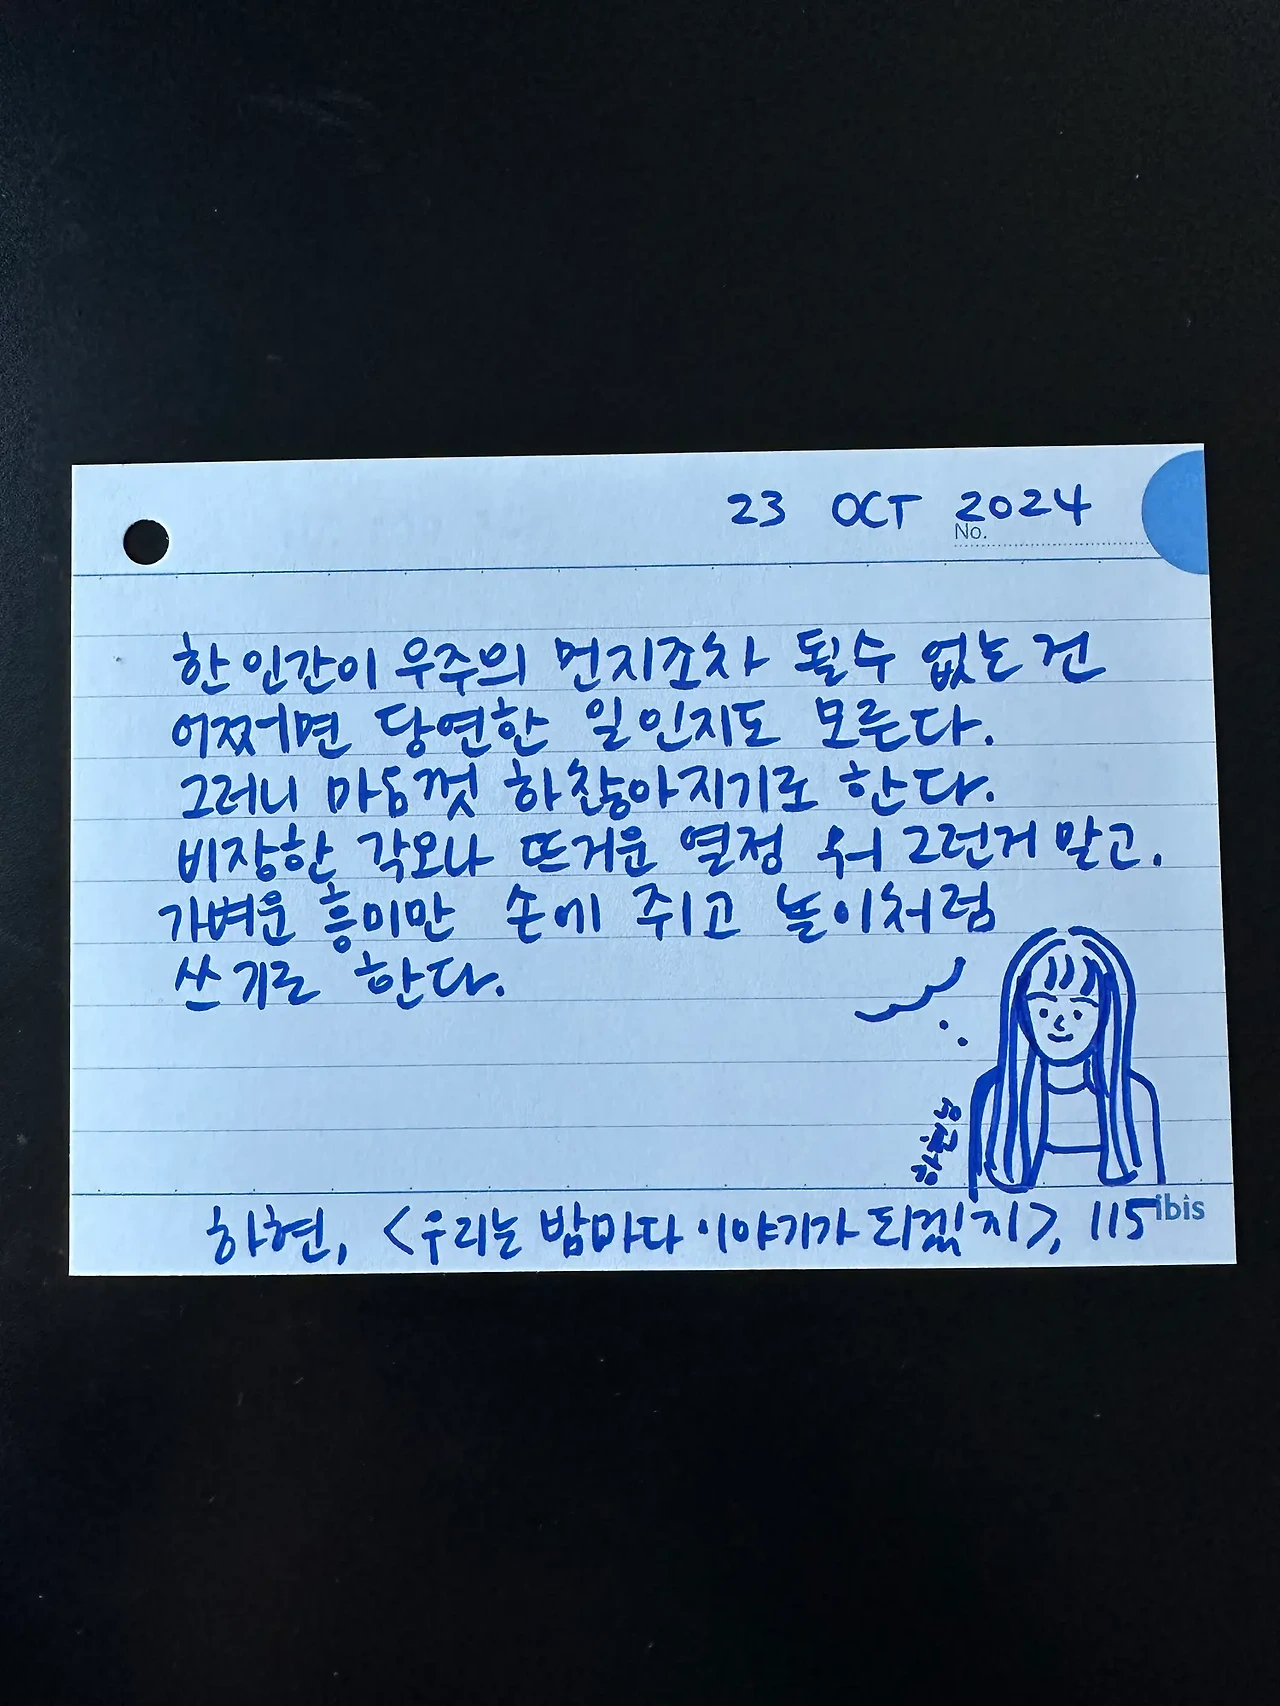 23 OCT 2024
No.
한 인간이 우주의 먼지조차 될수 없는 건
어쩌면 당연한 일인지도 모른다.
그러니 마음껏 하찮아지기로 한다.
비장한 각오나 뜨거운 열정 뭐 그런거 말고.
가벼운 흥미만 손에 쥐고 놀이처럼
쓰기로 한다.
하현, <우리는 밤마다 이야기가 되겠지>, 115
ibis